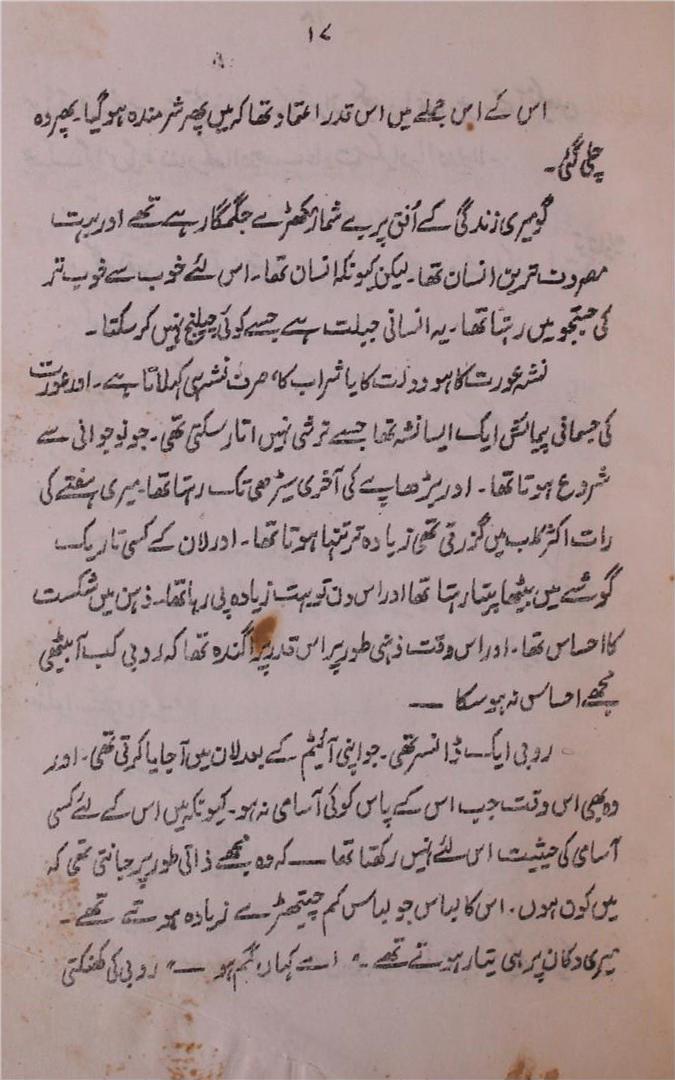 ۱۷
اس کے اس جملے میں اس قدر اعتماد تھا کہ میں پھر شرمندہ ہو گیا۔ پھر وہ
چلی گئی۔
گو میری زندگی کے اُفق پر بے شمار مکھڑے جگمگا رہے تھے اور بہت
مصروف ترین انسان تھا۔ لیکن کیونکہ انسان تھا۔ اس لئے خوب سے خوب تر
کی جستجو میں رہتا تھا۔ یہ انسانی جبلت ہے جسے کوئی چیلنج نہیں کر سکتا۔
نشہ عورت کا ہو دولت کا یا شراب کا، صرف نشہ ہی کہلاتا ہے۔ اور عورت
کی جسمانی پیمائش ایک ایسا نشہ تھا جسے ترشی نہیں اتار سکتی تھی۔ جو نوجوانی سے
شروع ہوتا تھا۔ اور بڑھاپے کی آخری سیڑھی تک رہتا تھا۔ میری ہفتے کی
رات اکثر کلب میں گزرتی تھی زیادہ تر تنہا ہوتا تھا۔ اور لان کے کسی تاریک
گوشے میں بیٹھا پیتا رہتا تھا اور اس دن تو بہت زیادہ پی رہا تھا۔ ذہن میں شکست
کا احساس تھا۔ اور اس وقت ذہنی طور پر اس قدر پراگندہ تھا کہ روبی کب آ بیٹھی
مجھے احساس نہ ہو سکا ——
روبی ایک ڈانسر تھی۔ جو اپنی آئیٹم کے بعد لان میں آ جایا کرتی تھی۔ اور
وہ بھی اس وقت جب اس کے پاس کوئی آسامی نہ ہو۔ کیونکہ میں اس کے لئے کسی
آسامی کی حیثیت اس لئے نہیں رکھتا تھا — کہ وہ مجھے ذاتی طور پر جانتی تھی کہ
میں کون ہوں۔ اس کا لباس جو لباس کم چیتھڑے زیادہ ہوتے تھے۔
میری دکان پر ہی تیار ہوتے تھے۔ "اے کہاں گم ہو —" روبی کی کھنکتی